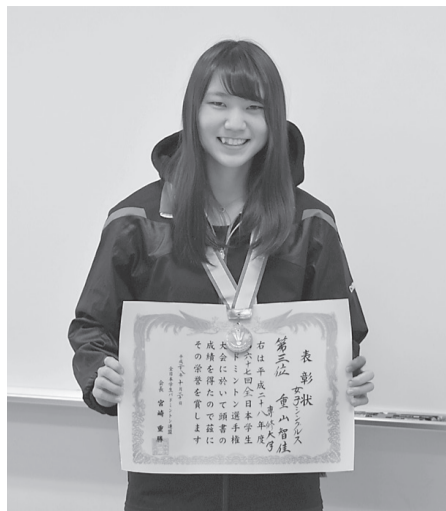 表彰状
女子シングルス
第三位
専修大学
重山智佳
右は平成二十八年度
第六十七回全日本学生
バドミントン選手権
大会に於いて頭書の
成績を得たので茲に
その栄誉を賞します
全日本学生バドミントン連盟
会長 宮崎重勝